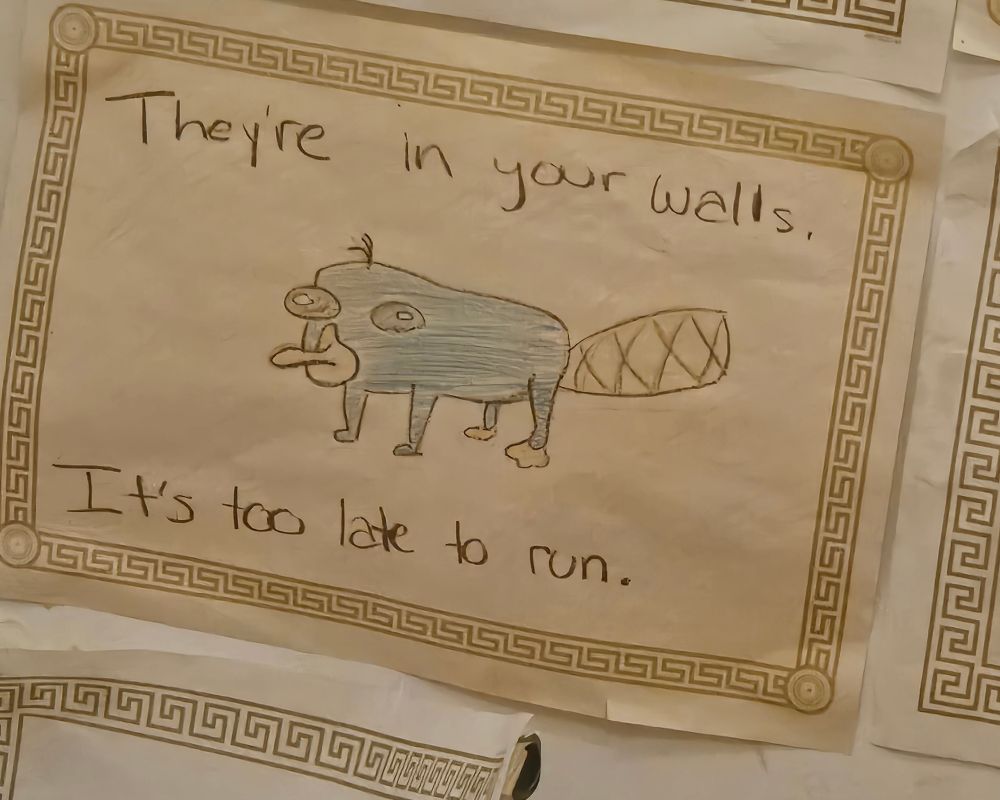 They're in your walls.
It's too late to run.